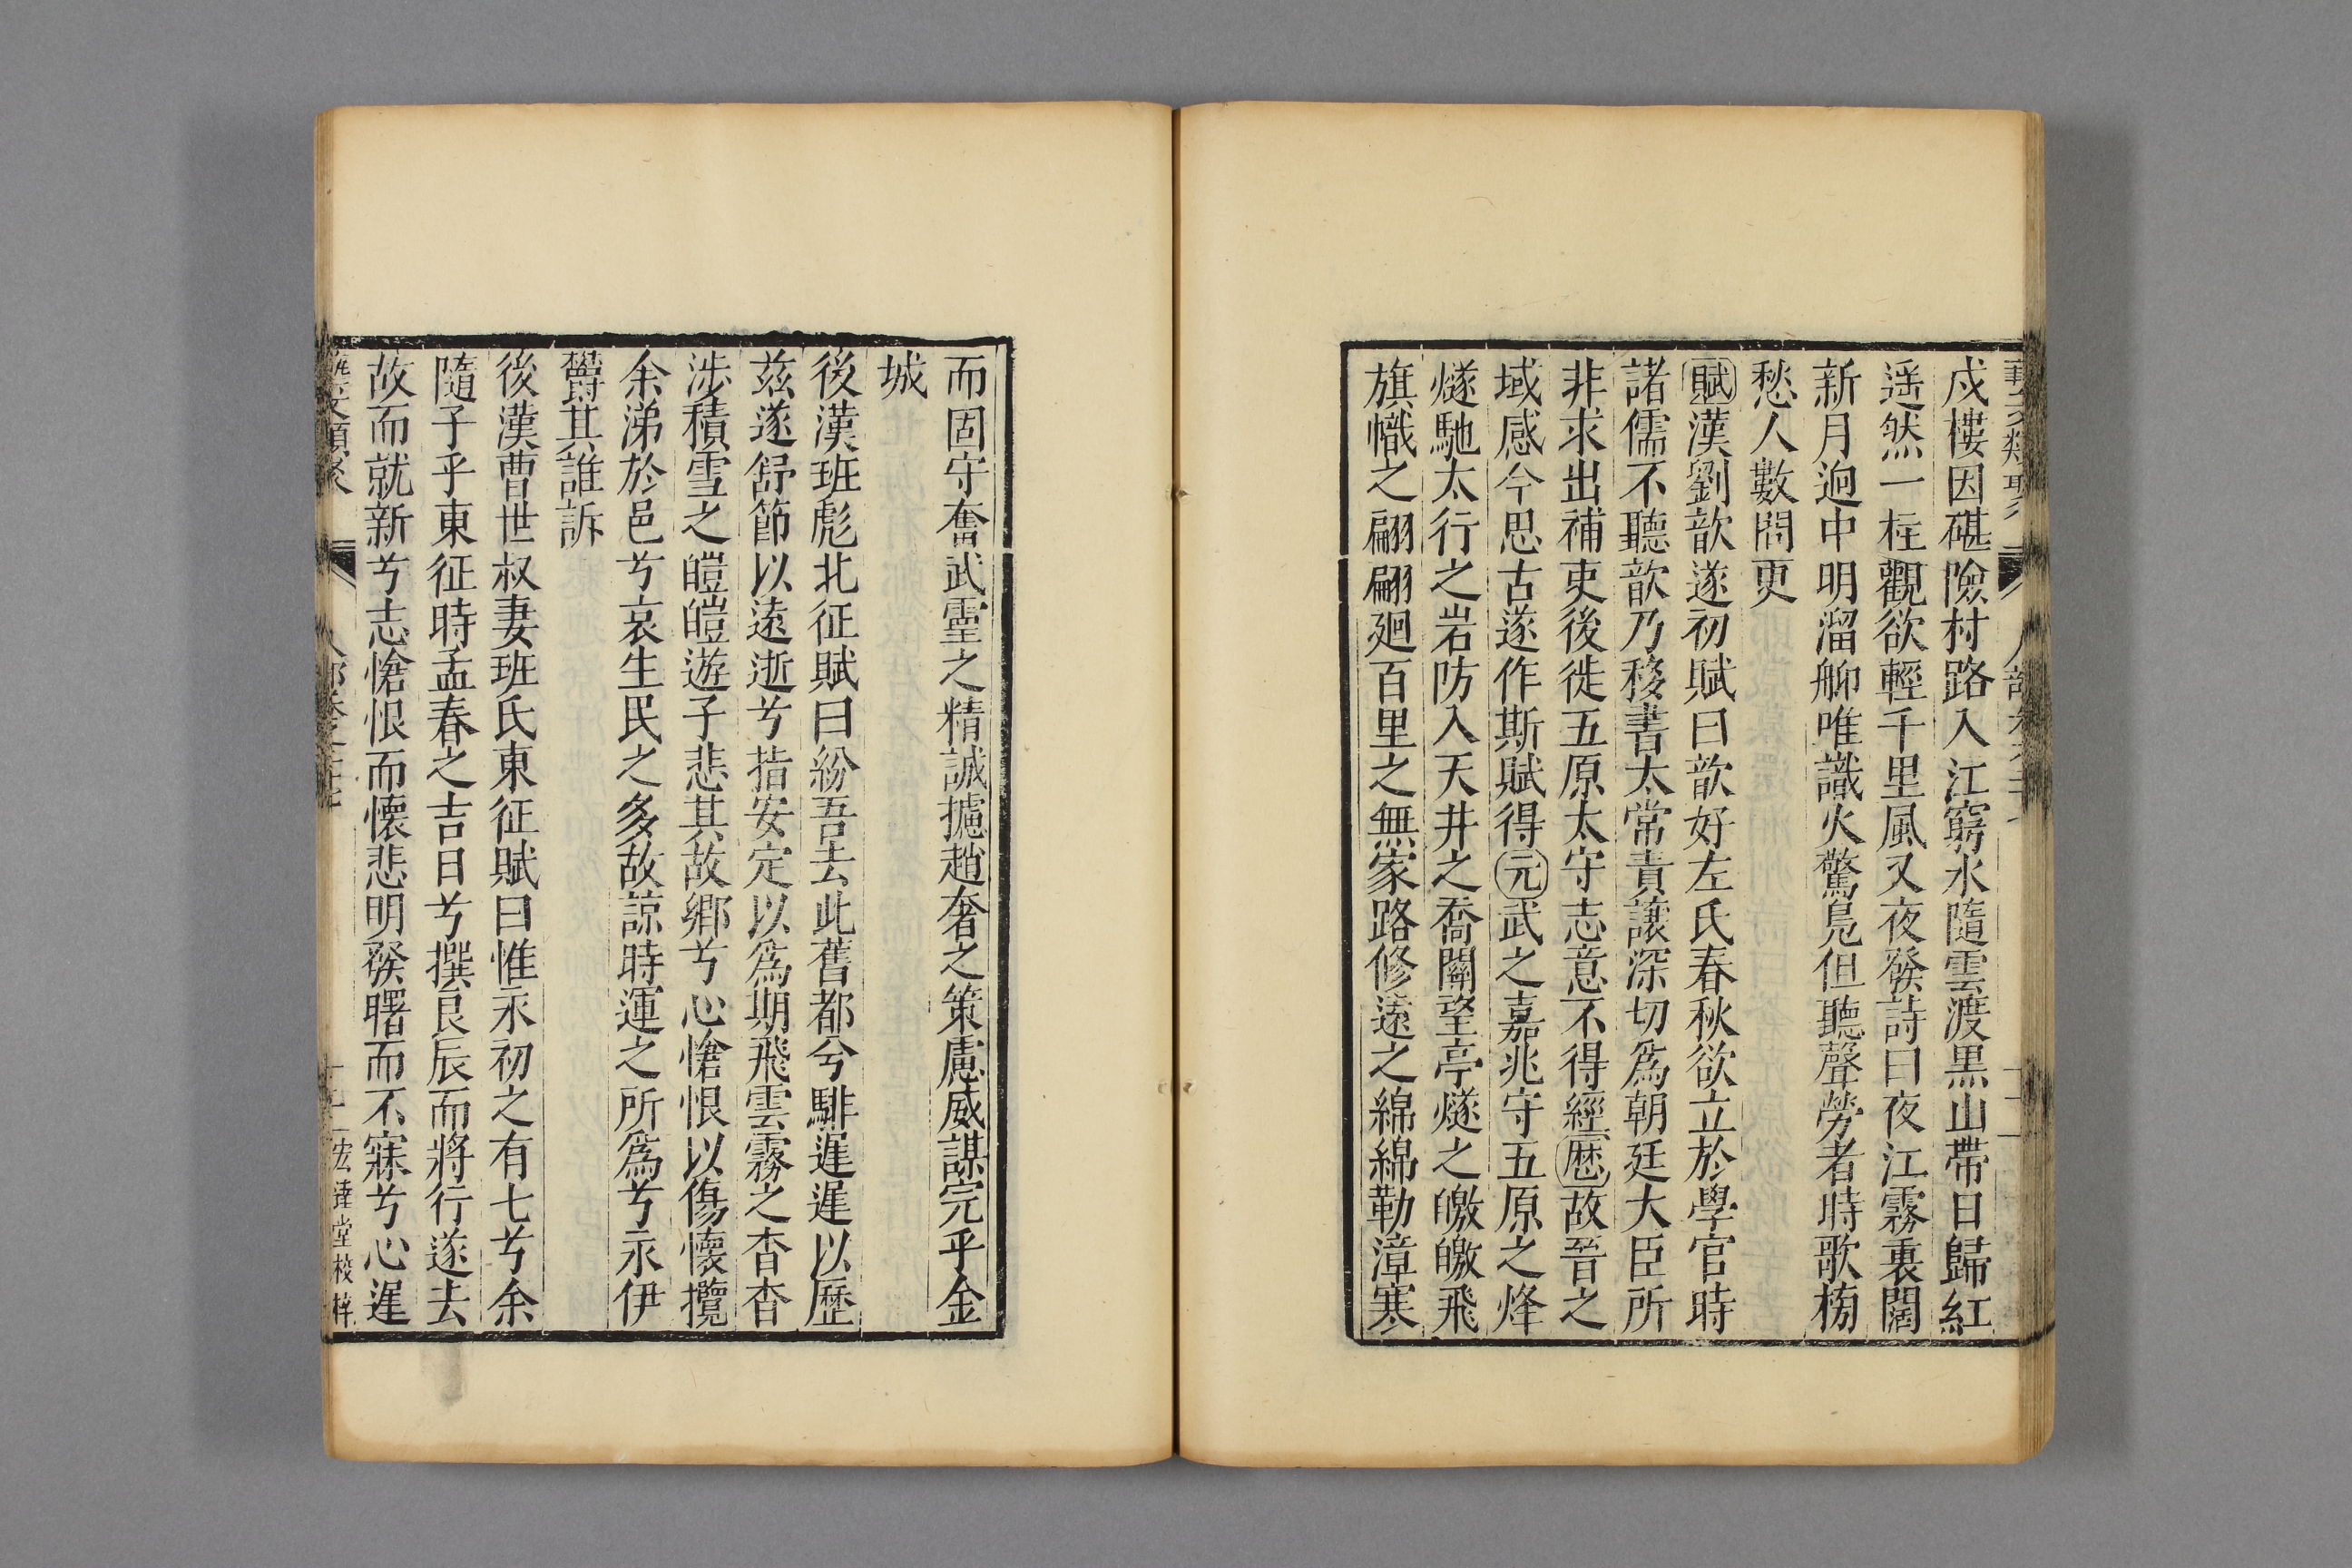 戍樓因礎險村路入江窮水隨雲渡黒山帶日歸紅
遥然一柱觀欲輕千里風又夜發詩曰夜江霧裏闊
新月逈中明溜舳唯識火驚鳬但聽聲勞者時歌榜
愁人數問更
賦漢劉歆遂初賦曰歆好左氏春秋欲立於學官時
諸儒不聽歆乃移書太常責讓深切爲朝廷大臣所
非求出補吏後徙五原太守志意不得經歷故晉之
域感今思古遂作斯賦得元武之嘉兆守五原之烽
燧馳太行之岩防入天井之喬關望亭燧之皦皦飛
旗幟之翩翩廻百里之無家路修遠之綿綿勒漳寒
而固守奮武靈之精誠攄趙奢之策慮威謀完乎金
城
後漢班彪北征賦曰紛吾去此舊都兮騑遲遲以歷
茲遂舒節以遠逝兮指安定以爲期飛雲霧之杳杳
涉積雪之皚皚遊子悲其故鄉兮心愴恨以傷懷攬
余涕於邑兮哀生民之多故諒時運之所爲兮永伊
鬱其誰訴
後漢曹世叔妻班氏東征賦曰惟永初之有七兮余
隨子乎東征時孟春之吉日兮撰良辰而將行遂去
故而就新兮志愴恨而懷悲明發曙而不寐兮心遲
藝文類聚 人部卷之二十七 宏達堂校梓